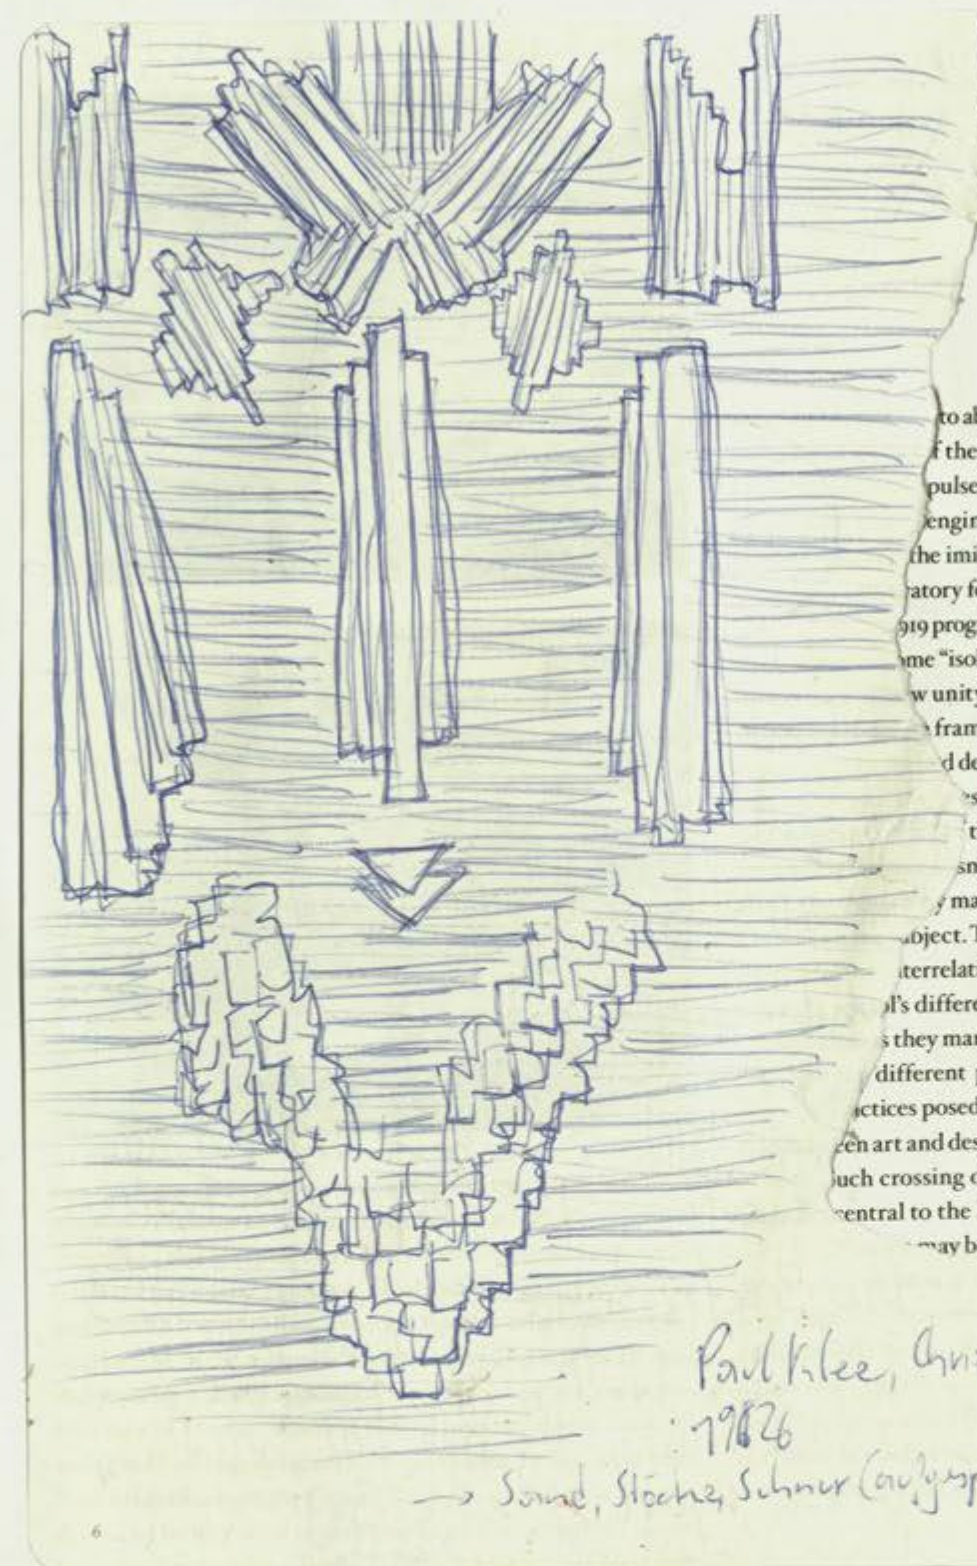 to al
f the
pulse
engin
the imi
ratory f
919 prog
ome “iso
w unity
fram
d de
es
t
sn
y ma
bject. T
terrelati
l's differe
s they ma
different
actices posed
een art and des
uch crossing o
central to the
may b
Paul Klee, Chri
19626
→ Sand, Stöcke, Schnur
6